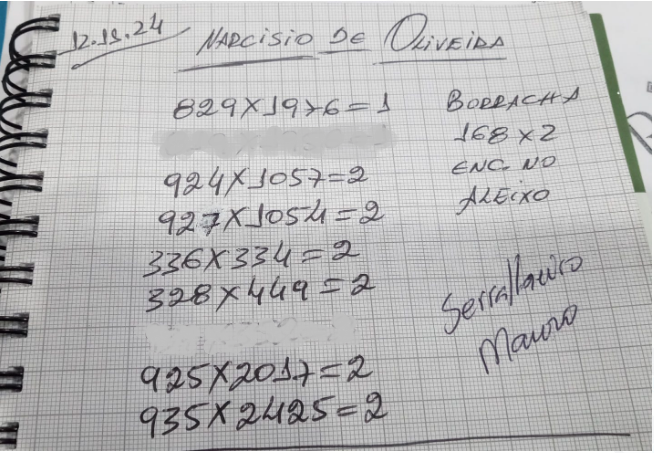 12.12.24
NARCISIO DE OLIVEIRA
829X1976=1
924X1057=2
927X1054=2
336X334=2
328X449=2
925X2017=2
935X2425=2
BORRACHA
168X2
ENC. NO
ALEIXO
Mauro